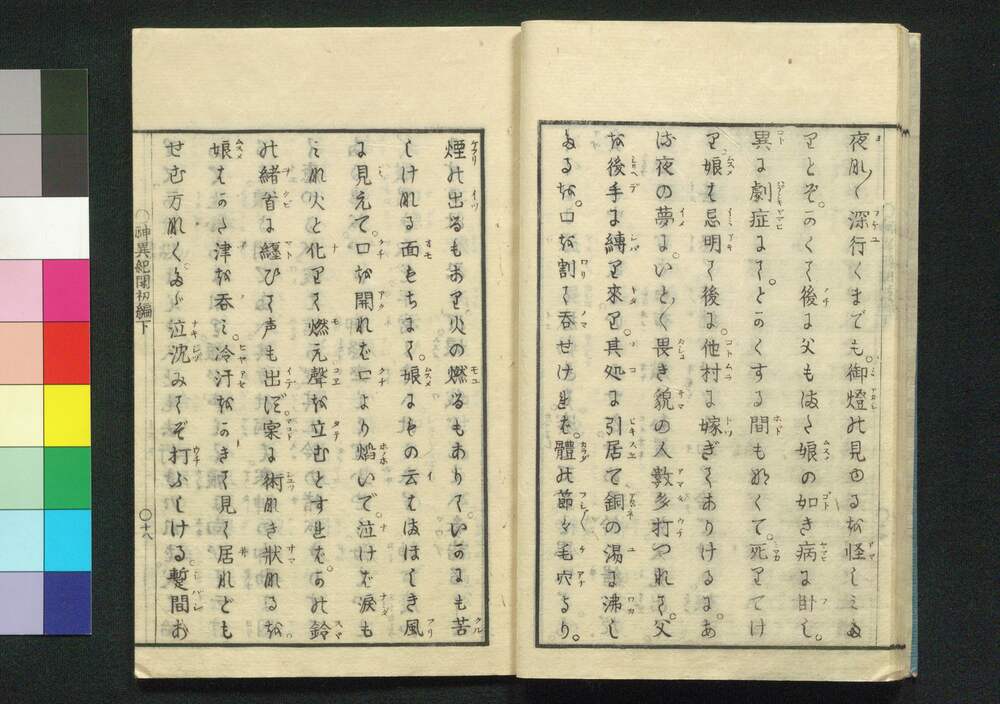 夜な〳〵深行くまでも。御燈の見ゆるを怪しミゐ
りとぞ。かくて後に父もまた娘の如き病に臥し。
異に劇症にて。とかくする間もなくて。死りてけ
り娘も忌明て後に。他村に嫁ぎてありけるに。あ
る夜の夢に。いとゞ畏き貌の人數多打つれて。父
を後手に縛り來り。其処に引居て銅の湯に沸し
たるを。口を割て呑せければ。體の節々毛穴より。
煙の出るもあり火の燃るもありて。いかにも苦
しける面もちにて。娘にもの云まほしき風
に見えて。口を開れば口より焔いで。泣けば涙も
これ火と化りて燃え聲を立むとすれば。かの鈴
の緒首に纏ひて声も出ず。寔に術なき状なるを。
娘もかた津を呑ミ。冷汗をかきて見て居れども
せむ方なく。たゞ泣沈みてぞ打ふしける。暫間お
神異紀聞初編下
〇十八